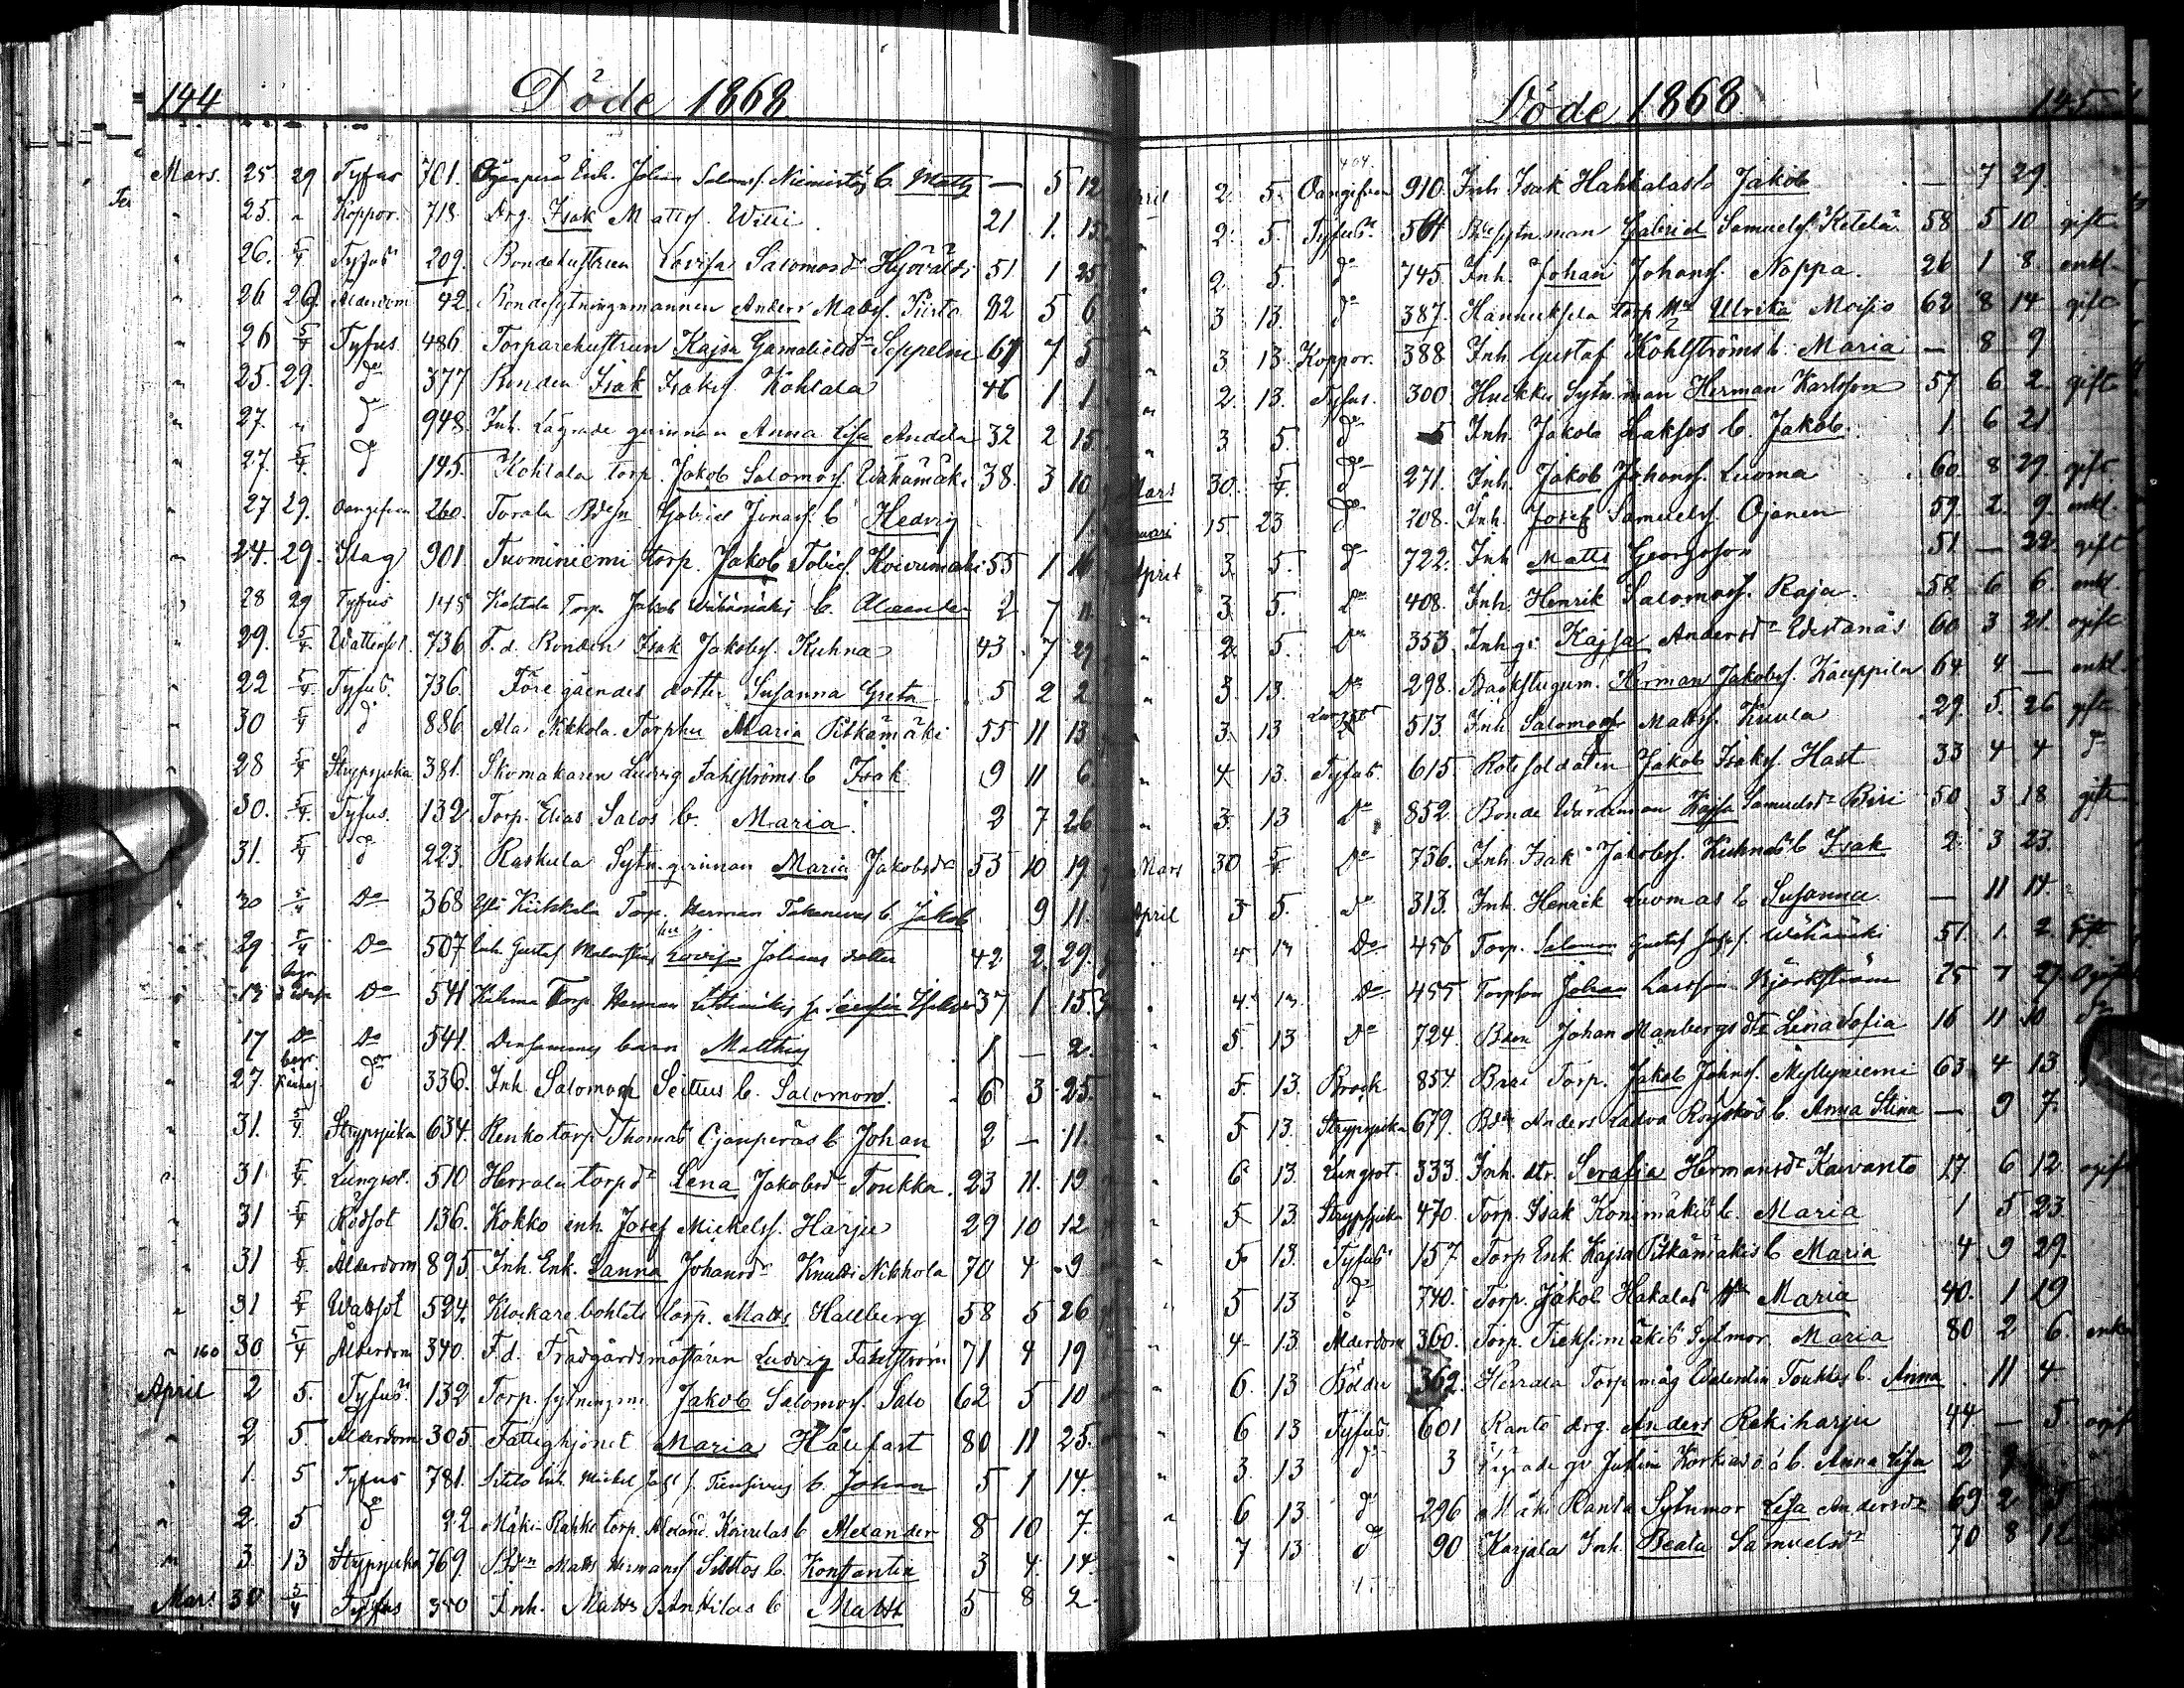 144 Döde 1868
Mars. 25. 29 Tyfus 701. Enk. Johan Salomosf. b. Matts — 5 12
" 25. " Koppor. 718. Drg. Isak Mattsf. Willi 21 1. 15
" 26. 5/4 Tyfus 209. Bondehustrun Lovisa Salomonsdr 51 1 25
" 26 29. Ålderdom 42. Bondesytningsmannen Anders Mattsf. Piirto 82 5 6
" 26 5/4 Tyfus 486. Torparehustrun Kajsa Gamalielsdr 67 7 5
" 25. 29. do 377 Bonden Isak Isaksf. Kohtala 46 1 1
" 27. " do 948. Inh. Lägrade qvinnan Anna Lisa Andela 32 2 15
" 27. 5/4. do 145. Kohtala torp. Jakob Salomosf. Wähämäki 38. 3 10
" 27 29. Oangifven 260. Torala Bdesn Gabriel Jonasf. b Hedvig 1.
" 24. 29. Slag 901. Tuominiemi torp. Jakob Tobiesf. Koivumäki 55 1
" 28 29 Tyfus 145 Kohtala Torp. Jakob Wähämäkis b. Alexander 2 7 11.
" 29. 5/4. Wattensot. 736. F. d. Bonden Isak Jakobsf. Kuhna 43 7 29
" 22 5/4. Tyfus. 736. Föregåendes dotter Susanna Greta 5 2 2
" 30 5/4 do 886. Ala Nikkola Torphu Maria Pitkämäki 55 11 13
" 28 5/4 Strypsjuka 381. Skomakaren Ludvig Fahlströms b Isak 9 11 6
" 30. 5/4. Tyfus. 132. Torp. Elias Salos b. Maria. 2 7 26
" 31. 5/4 do 223. Raskula Sytn.qvinnan Maria Jakobsdr 53 10 19
" 30 5/4 Do 368 Torp. Herman b. Jakob 9 11.
" 29 5/4 Do 507 Inh. Gustaf hu Lovisa Johans dotter 42 2. 29.
" 13 begr. Do 541 Torp. Herman 37 1 15
" 17 Do Do 541. Densammes barn Matthias 1 — 2.
" 27. begr. do 336. Inh. Salomon Seittus b. Salomon. 6 3 25.
" 31. 5/4. Strypsjuka 634. Renko torp Thomas Ojanperäs b Johan 2 — 11.
" 31 5/4 Lungsot. 510 Herrala torpdr Lena Jakobsdr Toukka. 23 11. 19
" 31 5/4 Rödsot 136. Kokko inh. Josef Mickelsf. Harju 29 10 12
" 31 5/4. Ålderdom 895. Inh. Enk. Sanna Johansdr Knutti Nikkola 70 4 9
" 31 5/4 Wattsot 524. Klockarebohlets torp. Matts Hallberg 58 5 26
" 160 30 5/4 Ålderdom 340. F. d. Trädgårdsmästaren Ludvig Fahlström 71 4 19
April 2 5. Tyfus 132 Torp. sytningsm. Jakob Salomosf. Salo 62 5 10
" 2 5. Ålderdom 305 Fattighjonet Maria Hållfast 80 11 25.
" 1. 5 Tyfus 781. Inh. Mickel b. Johan 5 1 14.
" 2. 5 do 22 Mäki-Rahko torp. Alexand. Koivulas b Alexander 8 10 7.
" 3. 13 Strypsjuka 769. Bdn Matts Hermansf. b. Konstantin 3 4. 14.
Mars 30 5/4 Tyfus 340 Inh. Matts Anttilas b Matts 5 8 2.
Döde 1868. 145
April 2. 5. Oangifven 910. Inh. Isak Hahkalas b Jakob — 7 29
" 2. 5. Tyfus 564 Sytn.man Gabriel Samuelsf. Ketelä 58 5 10 gift
" 2. 5. do 745. Inh. Johan Johansf. Noppa. 26 1 8. enkl.
" 3 13. do 387. Hannuksela torp. Ulrika Moisio 62 8 14 gift
" 3 13. Koppor. 388 Inh. Gustaf Kohlströms b. Maria — 8 9
" 2. 13. Tyfus. 300 Sytn.man Herman Karlsson 57 6 2. gift
" 3 5. do 5 Inh. Jakob Laksos b. Jakob. 1. 6 21
Mars 30. 5/4. do 271. Inh. Jakob Johansf. Luoma 60. 8 29. gift.
15 23 do 208. Inh. Josef Samuelsf. Ojanen 59. 2. 9. enkl.
April 3. 5. do 722. Inh. Matts Georgsson 51 — 22. gift
" 3. 5. Do 408. Inh. Henrik Salomosf. Raja. 58 6 6. enkl.
" 2. 5. Do 353. Inh.qv. Kajsa Andersdr 60 3 21. ogift
" 3. 13. Do 298. Backstugum. Herman Jakobsf. Kauppila 64 4 — enkl.
" 3. 13 513. Inh. Salomon Mattsf. Kuula 29. 5. 26 gift.
" 4 13. Tyfus. 615. Rotesoldaten Jakob Isaksf. Hast 33 4 4 do
" 3. 13 Do 852. Bonde Kajsa Samuelsdr 50 3 18. gift
Mars 30 5/4 Do 736. Inh. Isak Jakobsf. Kuhnas b Isak 2. 3 23.
April 3 5. do 313. Inh. Henrik Luomas b Susanna — 11 14.
4 13 Do 456 Torp. Salomon Gustaf Wähämäki 51. 1. 2. gift
4. 13 Do 455 Torpson Johan Larsson Björkström 25 7 27 Ogift
" 5. 13 Do 724. Bdn Johan Manbergs dtr Lena Sofia 16 11 10 do
" 5. 13. Brock 854. Torp. Jakob Johnsf. Myllyniemi 63 4 13
" 5 13. Strypsjuka 679. Bdn Anders b. Anna Stina — 9 7.
" 6 13. Lungsot. 333. Inh. dtr. Serafia Hermansdr Kaivanto 17. 6 12. ogift
" 5 13. Strypsjuka 470. Torp. Isak Konimäkis b. Maria 1 5 23.
" 5. 13. Tyfus 157. Torp Enk Kajsa Pitkämäkis b Maria 4. 9 29.
" 5 13 do 740. Torp. Jakob Hakalas Maria 40. 1 19
" 4 13. Ålderdom 360. Torp. Sytmor Maria 80 2 6. enka
" 6. 13 Bölder 362. Herrala Torp.måg Valentin Toukkas b. Anna 11 4
" 6 13 Tyfus. 601 Ranto drg. Anders Rekiharju 44. — 5. ogift
" 3. 13 do 3 Lägrade qv b. Anna Lisa 2 9
" 6 13. do 296 Mäki Ranta Sytnmor Lisa Andersdr 69 2 5
" 7 13 do 90 Karjala Inh. Beata Samuelsdr 70 8 12